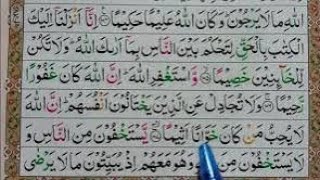 اللهِ مَا لَا يَرْجُوْنَ ؕ وَكَانَ اللهُ عَلِيْمًا حَكِيْمًا ۟ اِنَّاۤ اَنْزَلْنَاۤ اِلَيْكَ
الْكِتٰبَ بِالْحَقِّ لِتَحْكُمَ بَيْنَ النَّاسِ بِمَاۤ اَرٰىكَ اللهُ ؕ وَلَا تَكُنْ
لِّلْخَآئِنِيْنَ خَصِيْمًا ۟ وَّاسْتَغْفِرِ اللهَ ؕ اِنَّ اللهَ كَانَ غَفُوْرًا
رَّحِيْمًا ۟ وَلَا تُجَادِلْ عَنِ الَّذِيْنَ يَخْتَانُوْنَ اَنْفُسَهُمْ ؕ اِنَّ اللهَ
لَا يُحِبُّ مَنْ كَانَ خَوَّانًا اَثِيْمًا ۟ يَّسْتَخْفُوْنَ مِنَ النَّاسِ وَلَا
يَسْتَخْفُوْنَ مِنَ وَهُوَ مَعَهُمْ اِذْ يُبَيِّتُوْنَ مَا لَا يَرْضٰى